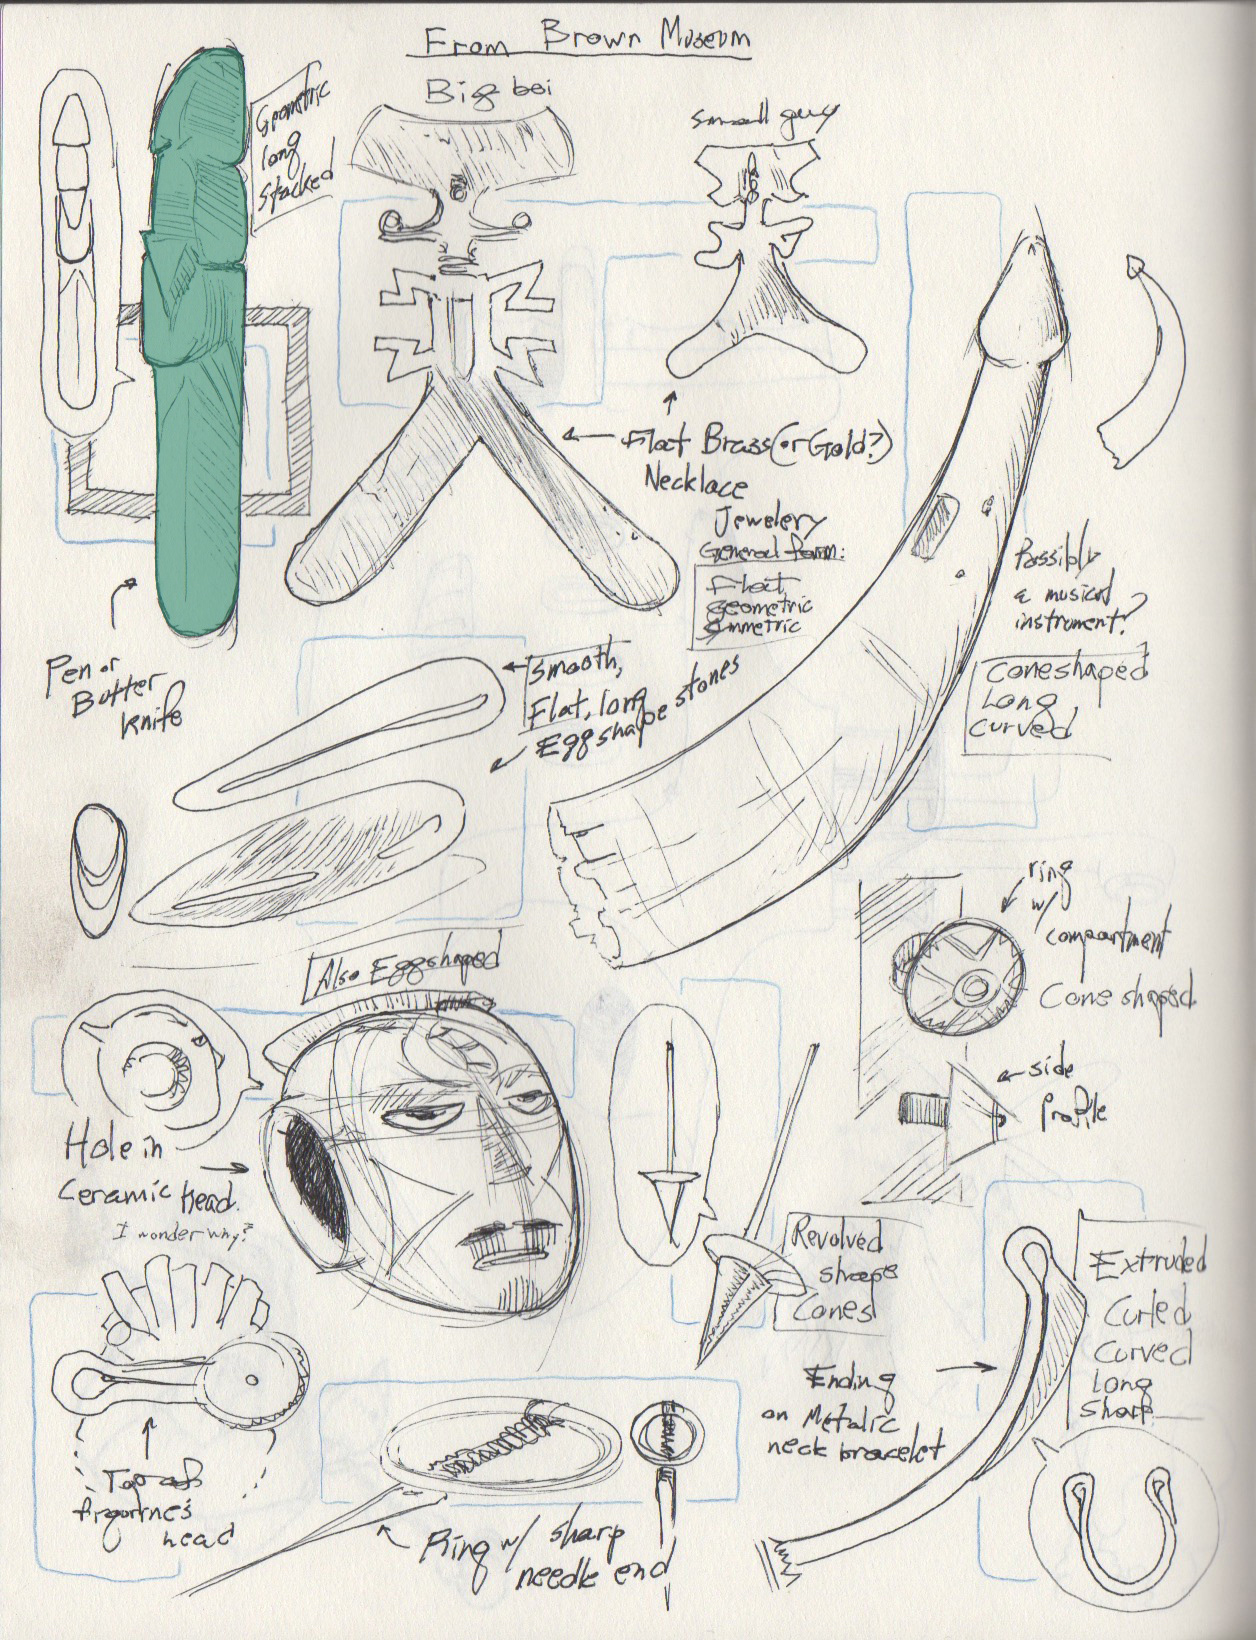 From Brown Museum
Big boi
small guy
Geometric
long
stacked
Flat Brass (or Gold?)
Necklace
Jewelery
General form:
Flat
geometric
symmetric
Possibly
a musical
instrument?
Coneshaped
Long
curved
Pen or
Butter
knife
smooth,
Flat, long
Egg shape stones
Also Eggshaped
ring
w/
compartment
Cone shaped
side
profile
Hole in
Ceramic Head.
I wonder why?
Revolved
shape
Cones
Extruded
Curled
Curved
Long
Sharp
Ending
on Metalic
neck bracelet
Top of
figurine's
head
Ring w/ sharp
needle end